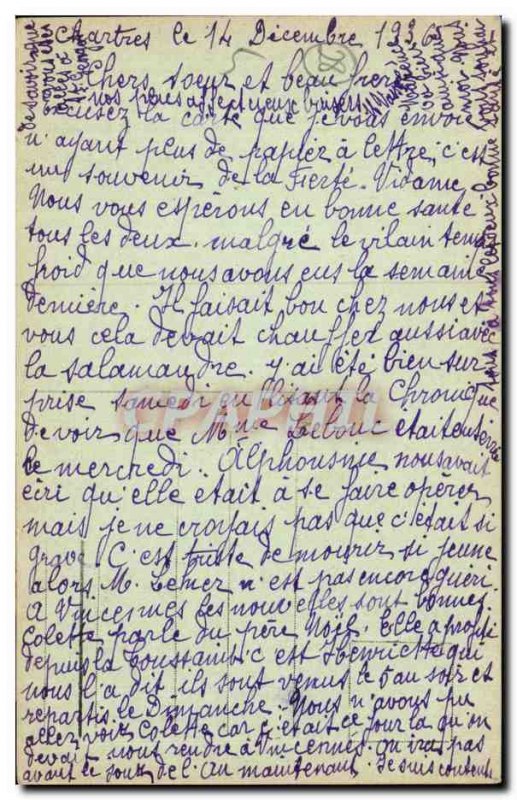 Chartres le 14 Décembre 1936
Chers soeur et beau frère
nos plus affectueux baisers
Excusez la carte que je vous envoie
n'ayant plus de papier à lettre, c'est
un souvenir de la Ferté-Vidame
Nous vous espérons en bonne santé
tous les deux, malgré le vilain temps
froid que nous avons eus la semaine
dernière. Il faisait bon chez nous et
vous cela devait chauffer aussi avec
la salamandre. j'ai été bien sur
prise samedi en lisant la Chronique
de voir que Mme Lelouc était enterrée
le mercredi. Alphonsine nous avait
écri qu'elle était à se faire opérer
mais je ne croyais pas que c'était si
grave. C'est triste de mourir si jeune
alors M. Lemer n'est pas encore guéri.
A Vincennes les nouvelles sont bonnes
Colette parle du père Noël. Elle a profité
depuis la Toussaint c'est Henriette qui
nous l'a dit, ils sont venus le 5 au soir et
repartis le Dimanche. Nous n'avons pu
aller voir Colette car c'était ce jour la qu'on
devait nous rendre à Vincennes. on ira pas
avant le jour de l'An maintenant. Je suis contente
de savoir que
CPAPHIL